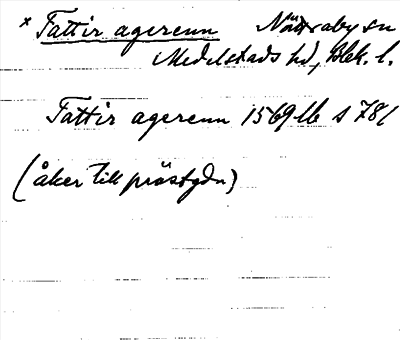 × Tattir agerenn Nättraby sn
Medelstads hd, Blek. l.
Tattir agerenn 1569 lb s 781
(åker till prästgdn)